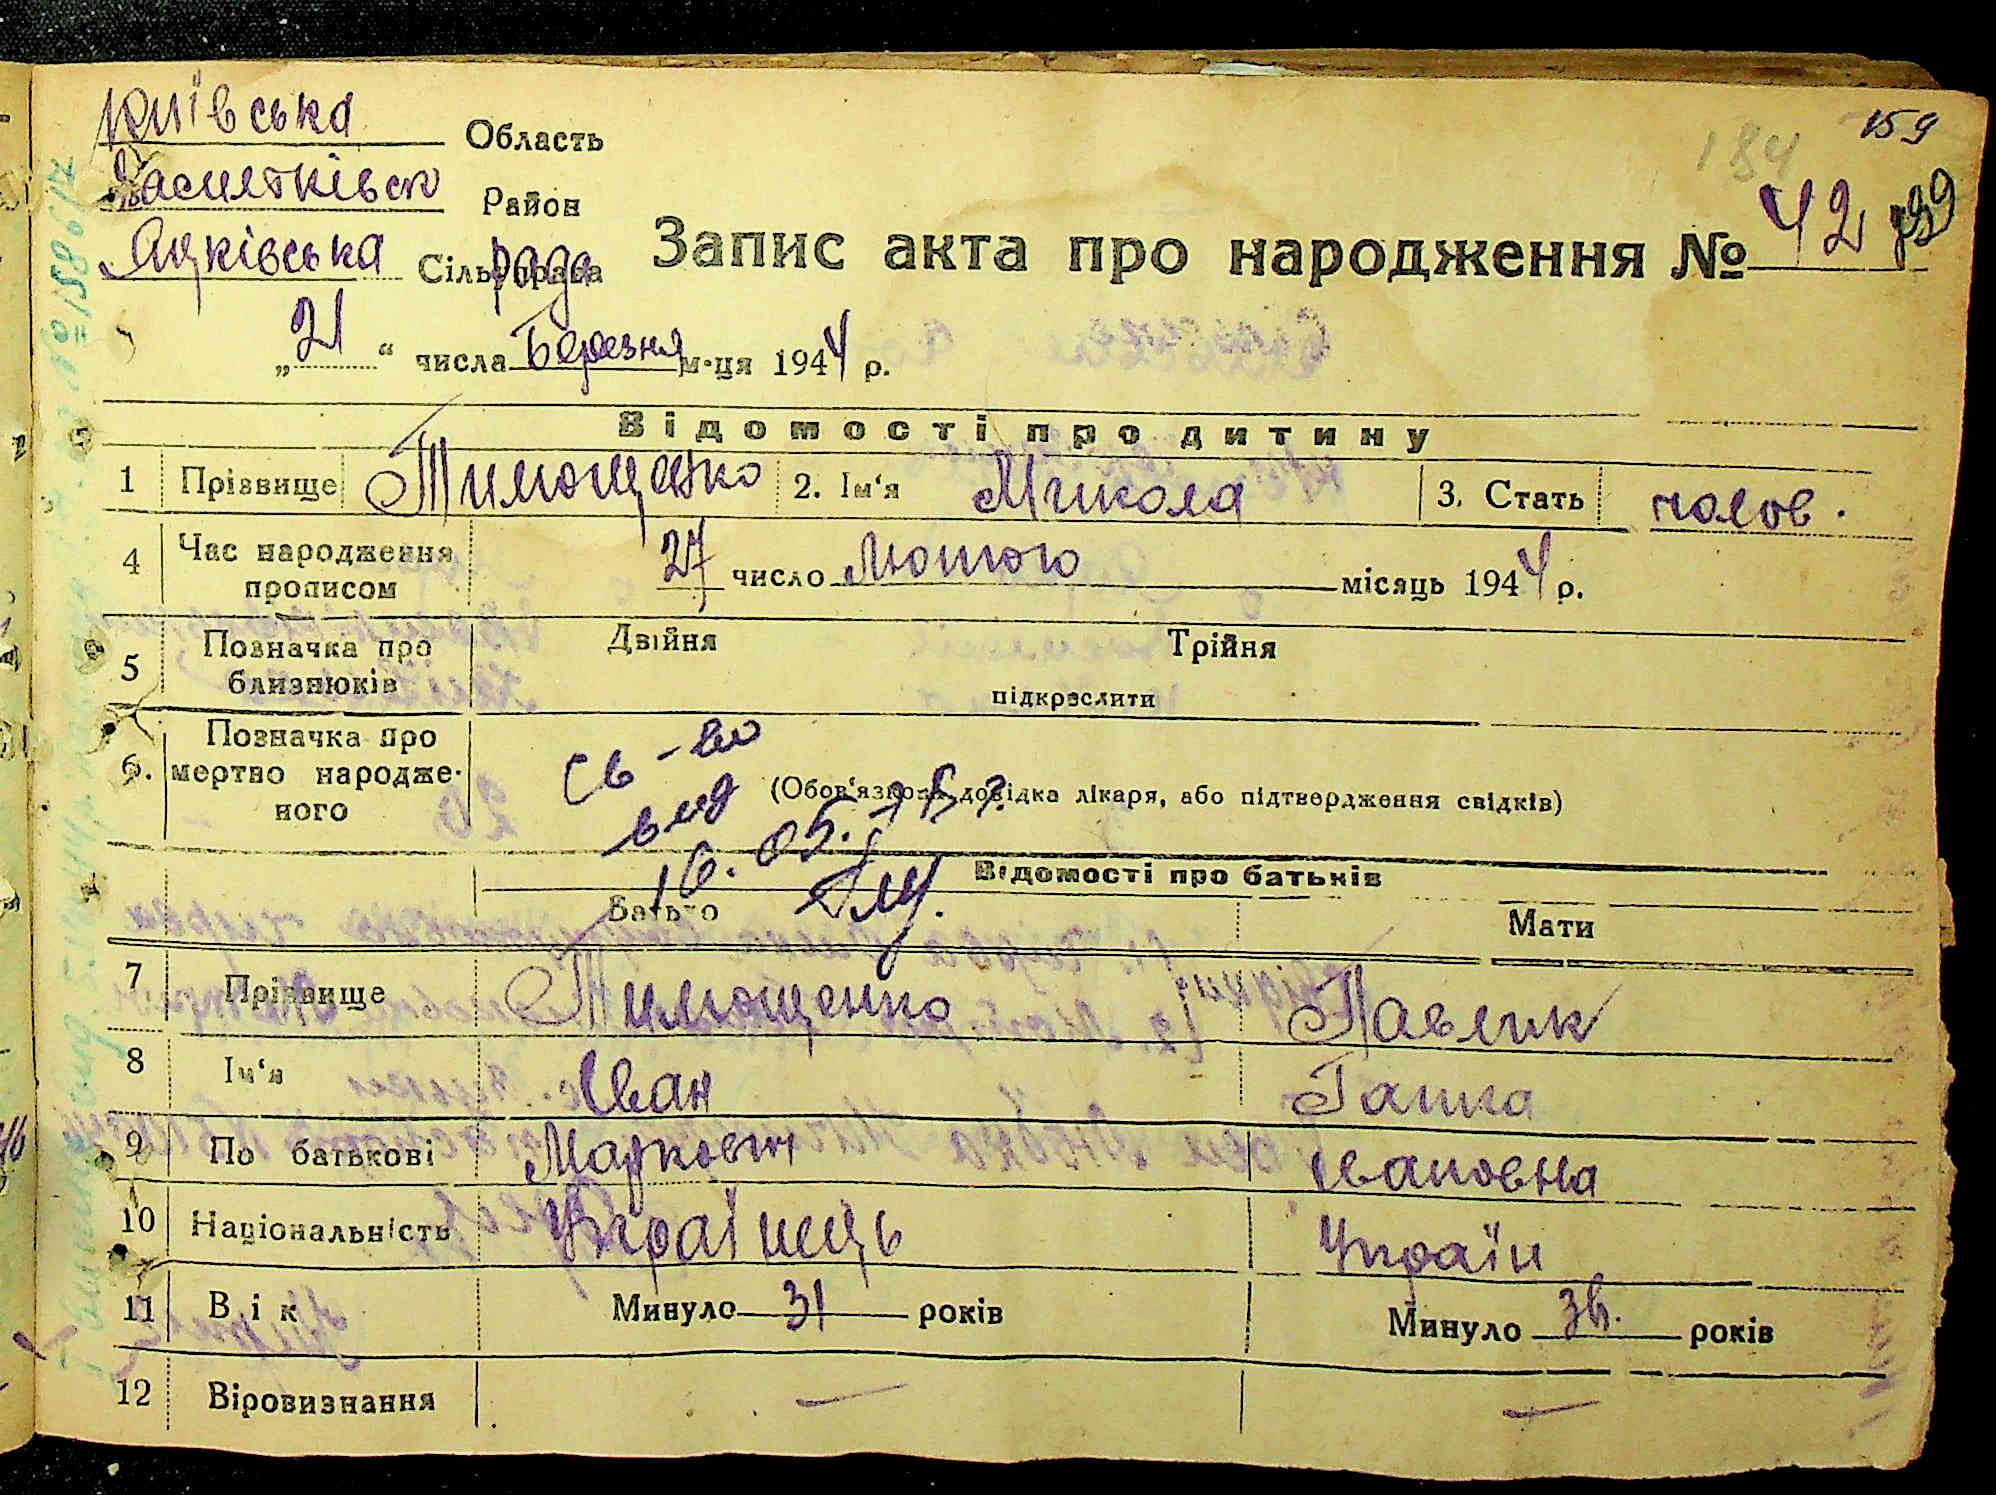 159
184
Київська Область
Васильківськ Район
Яцківська Сільуправа рада
Запис акта про народження № 42
„21“ числа Березня м-ця 1944 р.
Відомості про дитину
1 Прізвище Тимощенко 2. Ім'я Микола 3. Стать чолов.
4 Час народження прописом 27 число Лютого місяць 1944 р.
5 Позначка про близнюків Двійня Трійня
підкреслити
6. Позначка про мертво народженого (Обов'язкова довідка лікаря, або підтвердження свідків)
Св-во
выд
16.05.
Відомості про батьків
Батько Мати
7 Прізвище Тимощенко Павлик
8 Ім'я Іван Ганна
9 По батькові Маркович Івановна
10 Національність Українець Україн
11 Вік Минуло 31 років Минуло років
12 Віровизнання — —